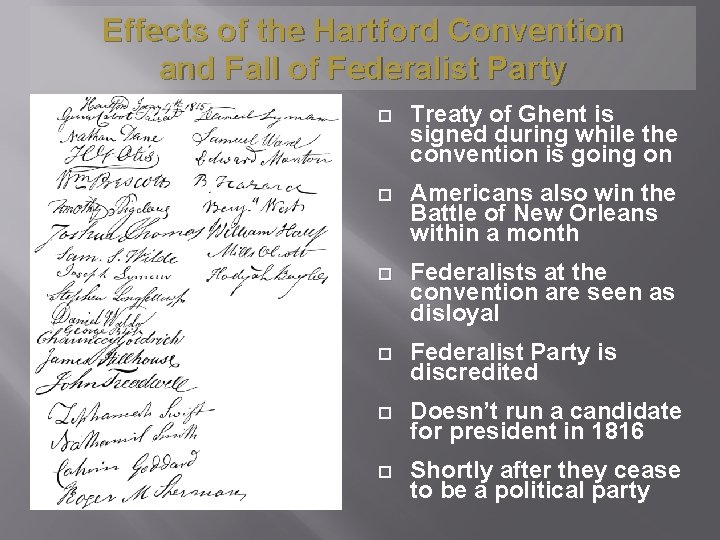 Effects of the Hartford Convention
and Fall of Federalist Party
Hartford Jany 4th 1815
George Cabot
Nathan Dane
H G Otis
Wm Prescott
Timothy Bigelow
Joshua Thomas
Sam. S. Wilde
Joseph Lyman
Stephen Longfellow
Daniel Waldo
George Bliss
Chauncey Goodrich
James Hillhouse
John Treadwell
Zephaniah Swift
Nathaniel Smith
Calvin Goddard
Roger M Sherman
Daniel Lyman
Samuel Ward
Edward Manton
B. Hazard
Benjn West
William Hall
Mills Olcott
Treaty of Ghent is
signed during while the
convention is going on
Americans also win the
Battle of New Orleans
within a month
Federalists at the
convention are seen as
disloyal
Federalist Party is
discredited
Doesn’t run a candidate
for president in 1816
Shortly after they cease
to be a political party